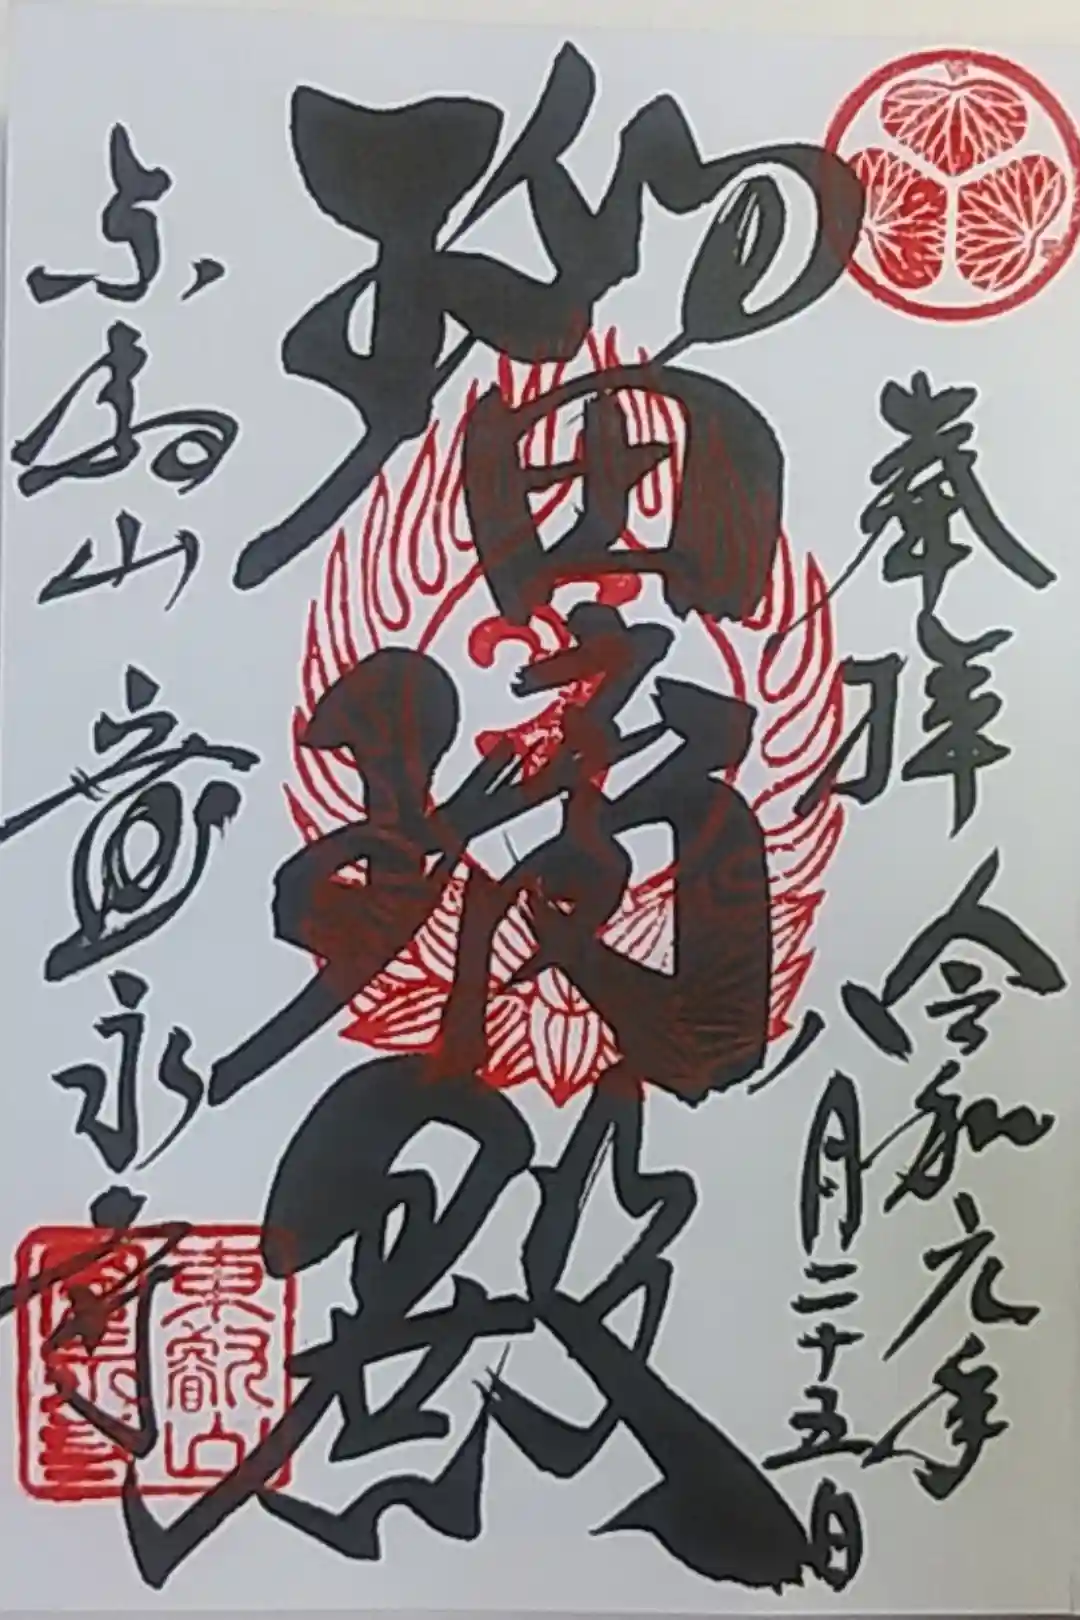 奉拝 令和元年
八月二十五日
瑠璃殿
東叡山 寛永寺
東叡山